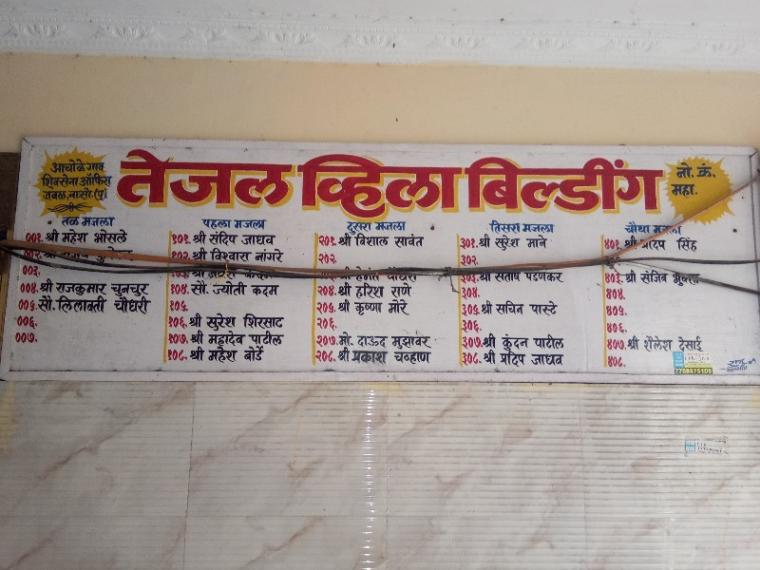 आचोळे गाव
शिवसेना ऑफिस
जवळ, नासो. (पू)
तेजल व्हिला बिल्डींग
नो. क्रं.
महा.
तळ मजला
००१. श्री महेश भोसले
००२. श्री
००३.
००४. श्री राजकुमार चुनचुर
००५. सौ. लिलावती चौधरी
००६.
००७.
पहला मजला
१०१. श्री संदिप जाधव
१०२. श्री विश्वास नांगरे
१०३. श्री
१०४. सौ. ज्योती कदम
१०५.
१०६. श्री सुरेश शिरसाट
१०७. श्री महादेव पाटील
१०८. श्री महेश बोर्डे
दुसरा मजला
२०१. श्री विशाल सावंत
२०२.
२०४. श्री हरिश राणे
२०५. श्री कृष्णा मोरे
२०६.
२०७. मो. दाऊद मुझावर
२०८. श्री प्रकाश चव्हाण
तिसरा मजला
३०१. श्री सुरेश माने
३०२.
३०३. श्री संतोष पेडणेकर
३०४.
३०५. श्री सचिन पास्टे
३०६.
३०७. श्री कुंदन पाटील
३०८. श्री प्रदिप जाधव
चौथा मजला
४०१. श्री प्रदिप सिंह
४०३. श्री संजिव
४०४.
४०५.
४०६.
४०७. श्री शैलेश देसाई
४०८.